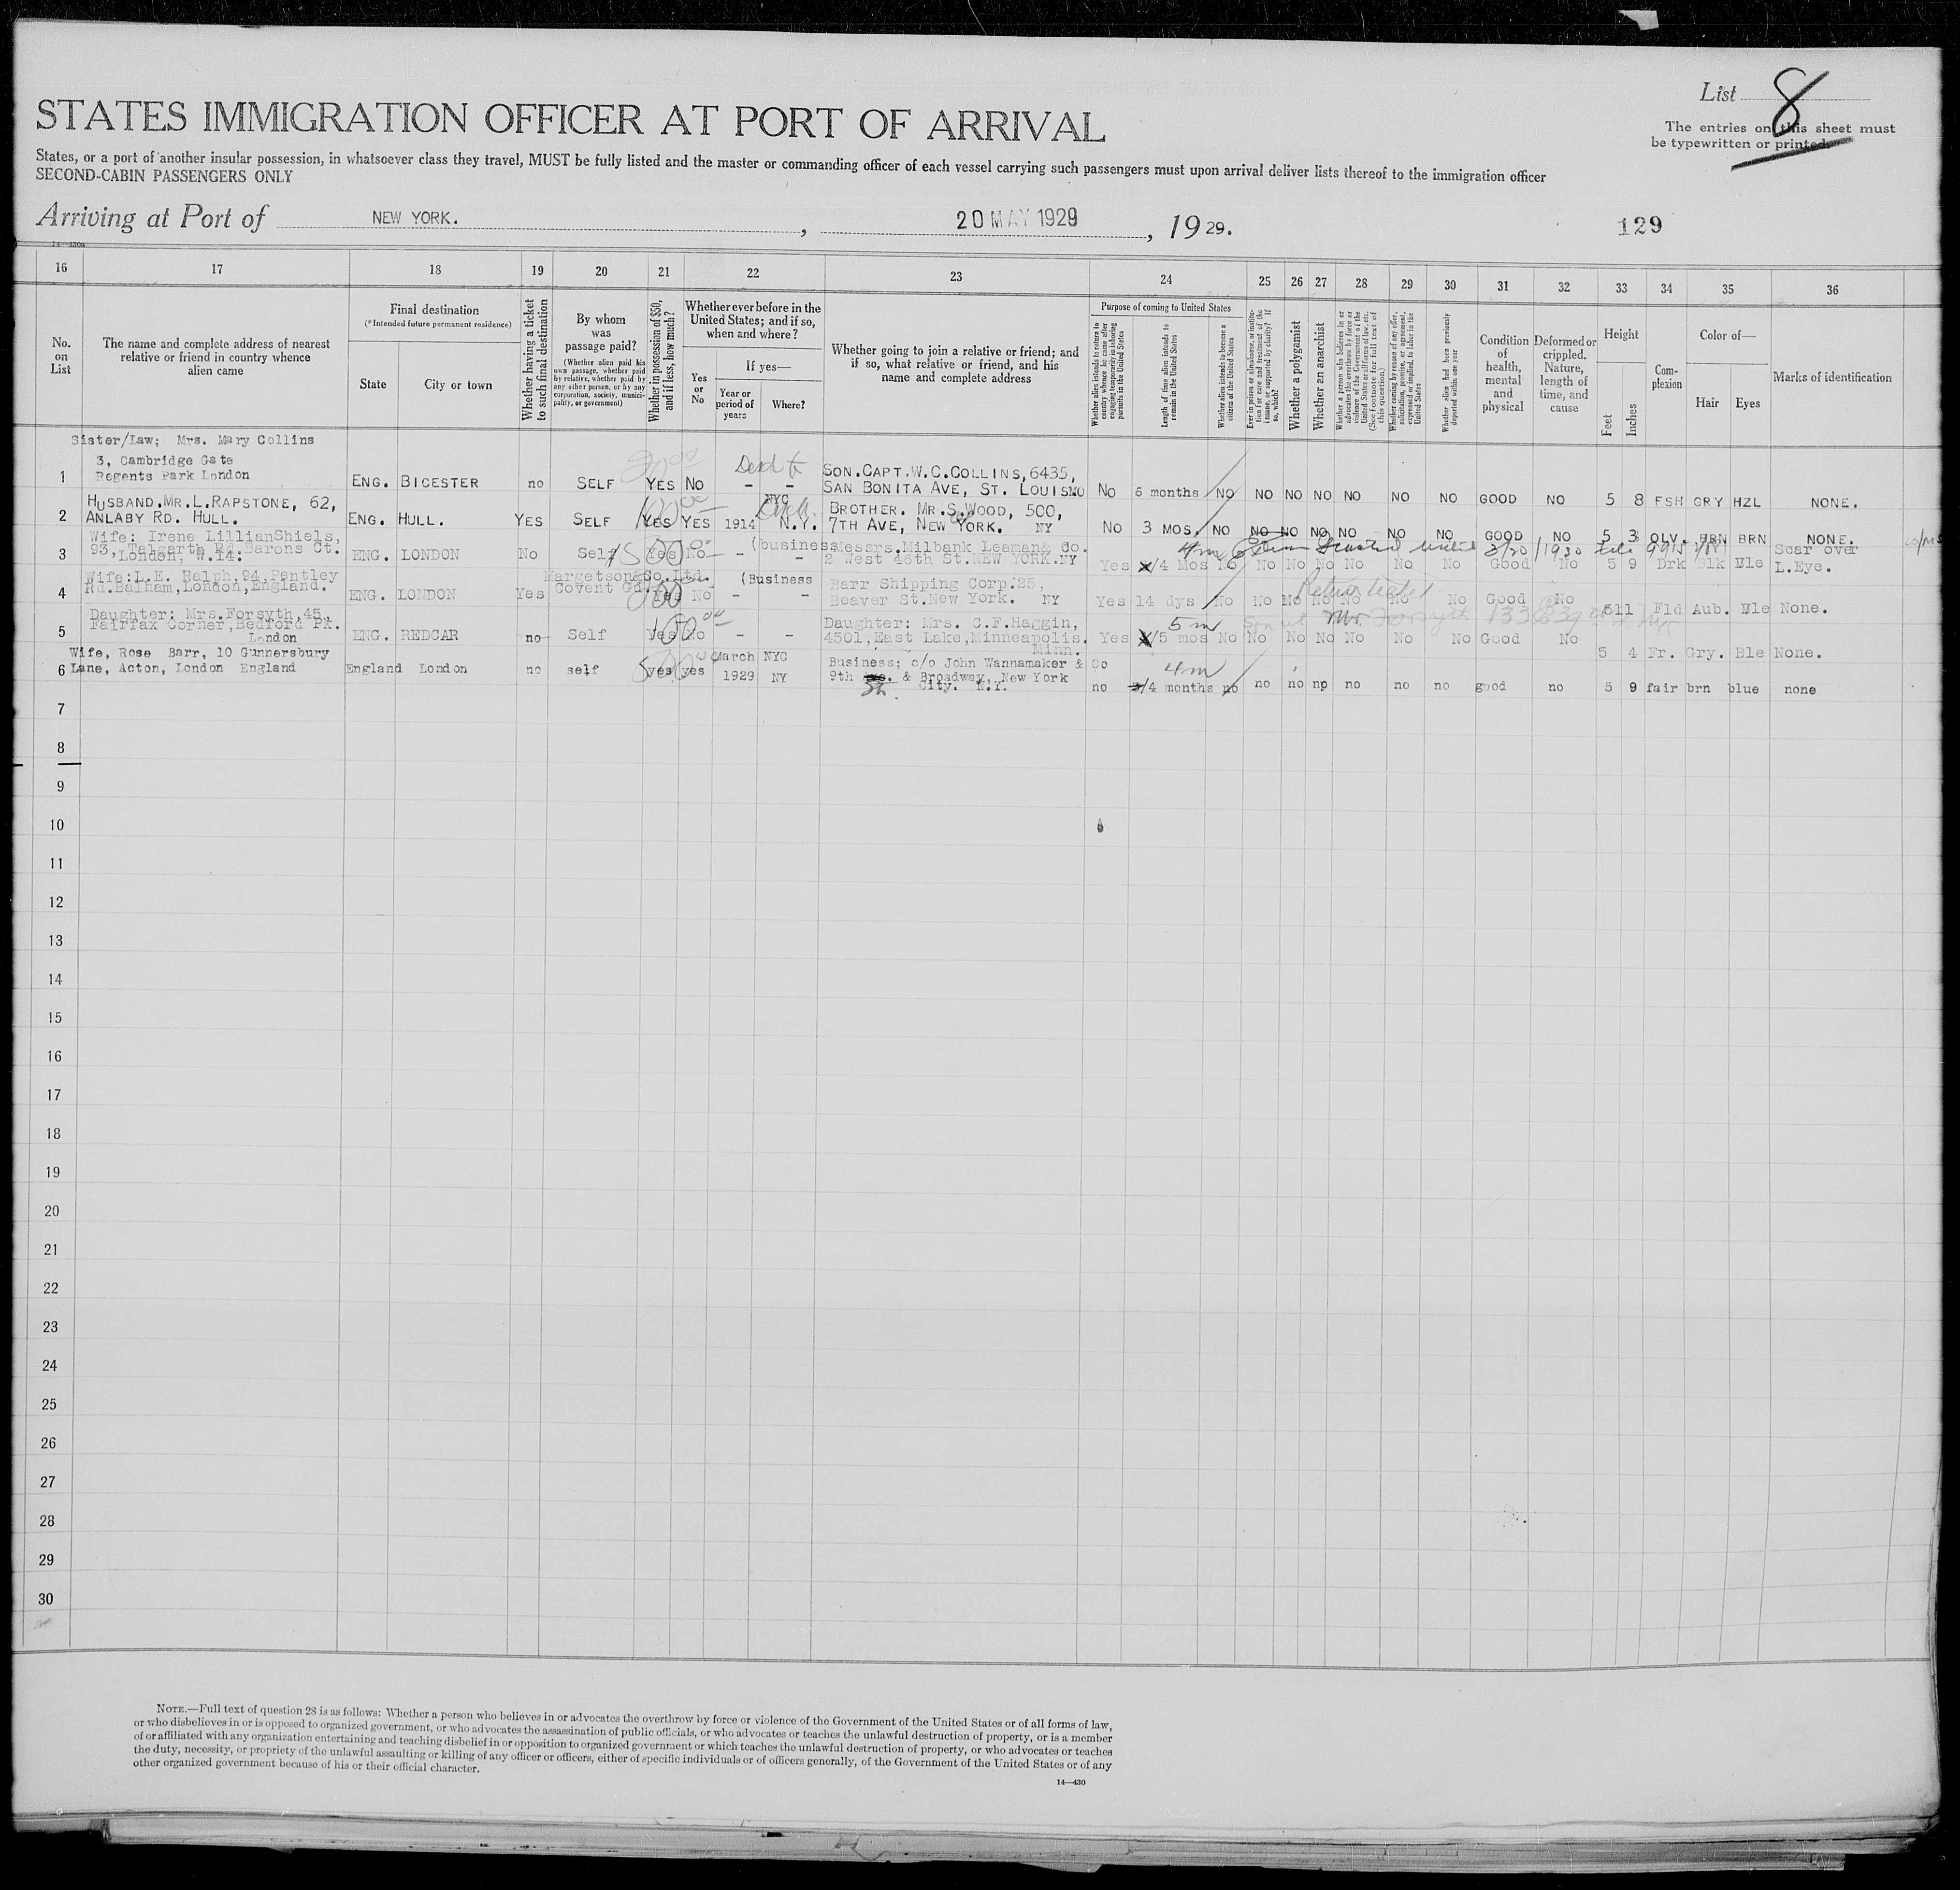 List 8
STATES IMMIGRATION OFFICER AT PORT OF ARRIVAL
The entries on this sheet must
be typewritten or printed.
States, or a port of another insular possession, in whatsoever class they travel, MUST be fully listed and the master or commanding officer of each vessel carrying such passengers must upon arrival deliver lists thereof to the immigration officer
SECOND-CABIN PASSENGERS ONLY
Arriving at Port of NEW YORK. , 20 MAY 1929 , 19 29. 129
14—430a
16 17 18 19 20 21 22 23 24 25 26 27 28 29 30 31 32 33 34 35 36
No. on List
The name and complete address of nearest relative or friend in country whence alien came
Final destination
(*Intended future permanent residence)
State
City or town
Whether having a ticket to such final destination
By whom was passage paid?
(Whether alien paid his own passage, whether paid by relative, whether paid by any other person, or by any corporation, society, municipality, or government)
Whether in possession of $50, and if less, how much?
Whether ever before in the United States; and if so, when and where?
Yes or No
If yes—
Year or period of years
Where?
Whether going to join a relative or friend; and if so, what relative or friend, and his name and complete address
Purpose of coming to United States
Whether alien intends to return to country whence he came after engaging temporarily in laboring pursuits in the United States
Length of time alien intends to remain in the United States
Whether alien intends to become a citizen of the United States
Ever in prison or almshouse, or institution for care and treatment of the insane, or supported by charity? If so, which?
Whether a polygamist
Whether an anarchist
Whether a person who believes in or advocates the overthrow by force or violence of the Government of the United States or all forms of law, etc. (See footnote for full text of this question)
Whether coming by reason of any offer, solicitation, promise, or agreement, expressed or implied, to labor in the United States
Whether alien had been previously deported within one year
Condition of health, mental and physical
Deformed or crippled. Nature, length of time, and cause
Height
Feet
Inches
Complexion
Color of—
Hair
Eyes
Marks of identification
Sister/Law; Mrs. Mary Collins
3, Cambridge Gate
1 Regents Park London ENG. BICESTER no SELF YES NO - - SON.CAPT.W.C.COLLINS,6435,
SAN BONITA AVE, ST. LOUIS MO NO 6 months NO NO NO NO NO NO NO GOOD NO 5 8 FSH GRY HZL NONE.
HUSBAND.MR.L.RAPSTONE, 62,
2 ANLABY RD. HULL. ENG. HULL. YES SELF YES YES 1914 NYC N.Y. BROTHER. MR.S.WOOD, 500,
7TH AVE, NEW YORK. NY NO 3 MOS. NO NO NO NO NO NO NO GOOD NO 5 3 OLV. BRN BRN NONE.
Wife: Irene LillianShiels,
93, Talgarth Rd.Barons Ct.
3 London, W.14: ENG. LONDON No Self 1500 Yes No - - (business Messrs.Milbank Leaman& Co.
2 West 46th St.NEW YORK.NY Yes 4m /4 Mos No No No No No No No Good No 5 9 Drk Blk Ble Scar over
L.Eye.
Wife:L.E. Ralph,94,Pentley
4 Rd.Balham,London,England. ENG. LONDON Yes Margetson&Co.Ltd.
Covent Gdn. Yes No - - (Business Barr Shipping Corp.25,
Beaver St.New York. NY Yes 14 dys No No No No No No No Good No 5 11 Fld Aub. Ble None.
Daughter: Mrs.Forsyth,45,
5 Fairfax Corner,Bedford Pk.
London ENG. REDCAR no Self 100 Yes No - - Daughter: Mrs. C.F.Haggin,
4501,East Lake,Minneapolis.
Minn. Yes 5m /5 mos No No No No No No No Good No 5 4 Fr. Gry. Ble None.
Wife, Rose Barr, 10 Gunnersbury
6 Lane, Acton, London England England London no self 500 yes yes March 1929 NYC NY Business; c/o John Wannamaker & Co
9th St. & Broadway, New York
City. N.Y. no 4m /4 months no no no np no no no good no 5 9 fair brn blue none
7
8
9
10
11
12
13
14
15
16
17
18
19
20
21
22
23
24
25
26
27
28
29
30
NOTE.—Full text of question 28 is as follows: Whether a person who believes in or advocates the overthrow by force or violence of the Government of the United States or of all forms of law,
or who disbelieves in or is opposed to organized government, or who advocates the assassination of public officials, or who advocates or teaches the unlawful destruction of property, or is a member
of or affiliated with any organization entertaining and teaching disbelief in or opposition to organized government or which teaches the unlawful destruction of property, or who advocates or teaches
the duty, necessity, or propriety of the unlawful assaulting or killing of any officer or officers, either of specific individuals or of officers generally, of the Government of the United States or of any
other organized government because of his or their official character.
14—430